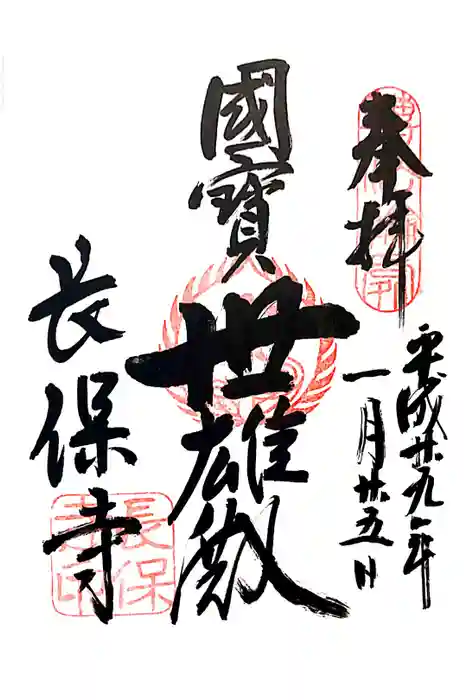 奉拝
平成廿九年
一月廿五日
國寶
世雄殿
長保寺
長保
寺印